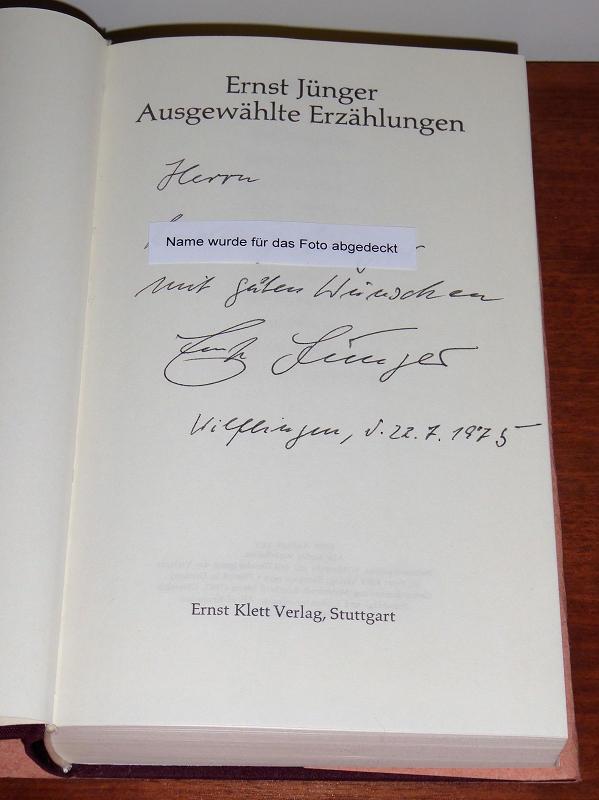 Ernst Jünger
Ausgewählte Erzählungen
Herrn
Name wurde für das Foto abgedeckt
mit guten Wünschen
Ernst Jünger
Wilflingen, d. 22. 7. 1975
Ernst Klett Verlag, Stuttgart